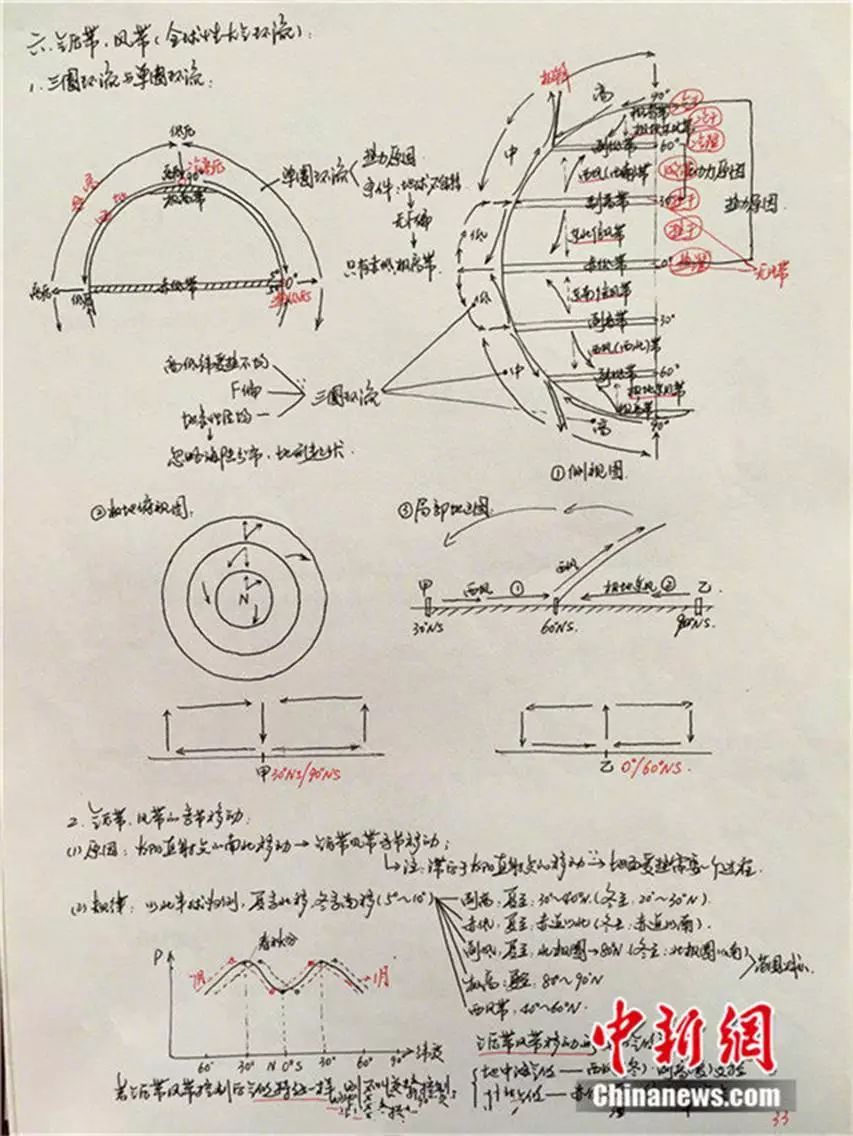 六、气压带、风带(全球性大气环流):
1、三圈环流与单圈环流:
低压
极高带
单圈环流
热力原因
条件:地球不自转
无偏
只有赤低极高带
高压
低压
赤低带
0°
高
90°
极高带
副低带
60°
西风(西南)带
动力原因
副高带
30°
热力原因
东北信风带
赤低带
0°
东南信风带
副高带
30°
西风(西北)带
副低带
60°
极地东风带
极高带
90°
中
低
低
中
高
高低纬受热不均
F偏
三圈环流
忽略海陆分布、地形起伏
①侧视图
②极地俯视图
N
③局部地区图
甲
西风
①
西风
极地东风
②
乙
30°NS
60°NS.
90°NS.
甲 30°NS/90°NS
乙 0°/60°NS.
2、气压带、风带的季节移动:
(1)原因:太阳直射点的南北移动→气压带风带季节移动;
注:滞后于太阳直射点的移动 地面受热需要一个过程.
(2)规律:以北半球为例,夏季北移,冬季南移(5°~10°)
副高,夏至:30°~40°N.(冬至,20°~30°N)
赤低,夏至:赤道以北(冬至:赤道以南).
副低,夏至,北极圈→80°N(冬至:北极圈以南)
极高:夏至:80°~90°N
西风带,40°~60°N.
春秋分
P
7月
1月
60° 30° N 0° S 30° 60° 90° 纬度
气压带风带移动
地中海气候
中新网
Chinanews.com
33